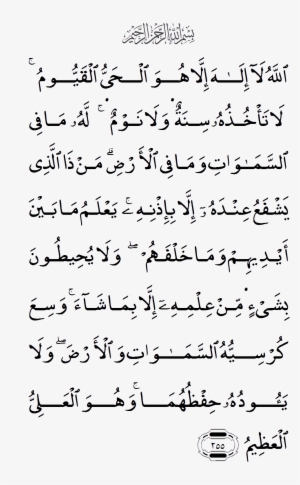 بِسْمِ ٱللَّهِ ٱلرَّحْمَٰنِ ٱلرَّحِيمِ
ٱللَّهُ لَآ إِلَـٰهَ إِلَّا هُوَ ٱلْـحَىُّ ٱلْقَيُّومُ ۚ
لَا تَأْخُذُهُۥ سِنَةٌ وَلَا نَوْمٌ ۚ لَّهُۥ مَا فِى
ٱلسَّمَـٰوَٰتِ وَمَا فِى ٱلْأَرْضِ ۗ مَن ذَا ٱلَّذِى
يَشْفَعُ عِندَهُۥٓ إِلَّا بِإِذْنِهِۦ ۚ يَعْلَمُ مَا بَيْنَ
أَيْدِيهِمْ وَمَا خَلْفَهُمْ ۖ وَلَا يُحِيطُونَ
بِشَىْءٍ مِّنْ عِلْمِهِۦٓ إِلَّا بِمَا شَآءَ ۚ وَسِعَ
كُرْسِيُّهُ ٱلسَّمَـٰوَٰتِ وَٱلْأَرْضَ ۖ وَلَا
يَـُٔودُهُۥ حِفْظُهُمَا ۚ وَهُوَ ٱلْعَلِىُّ
ٱلْعَظِيمُ ٢٥٥